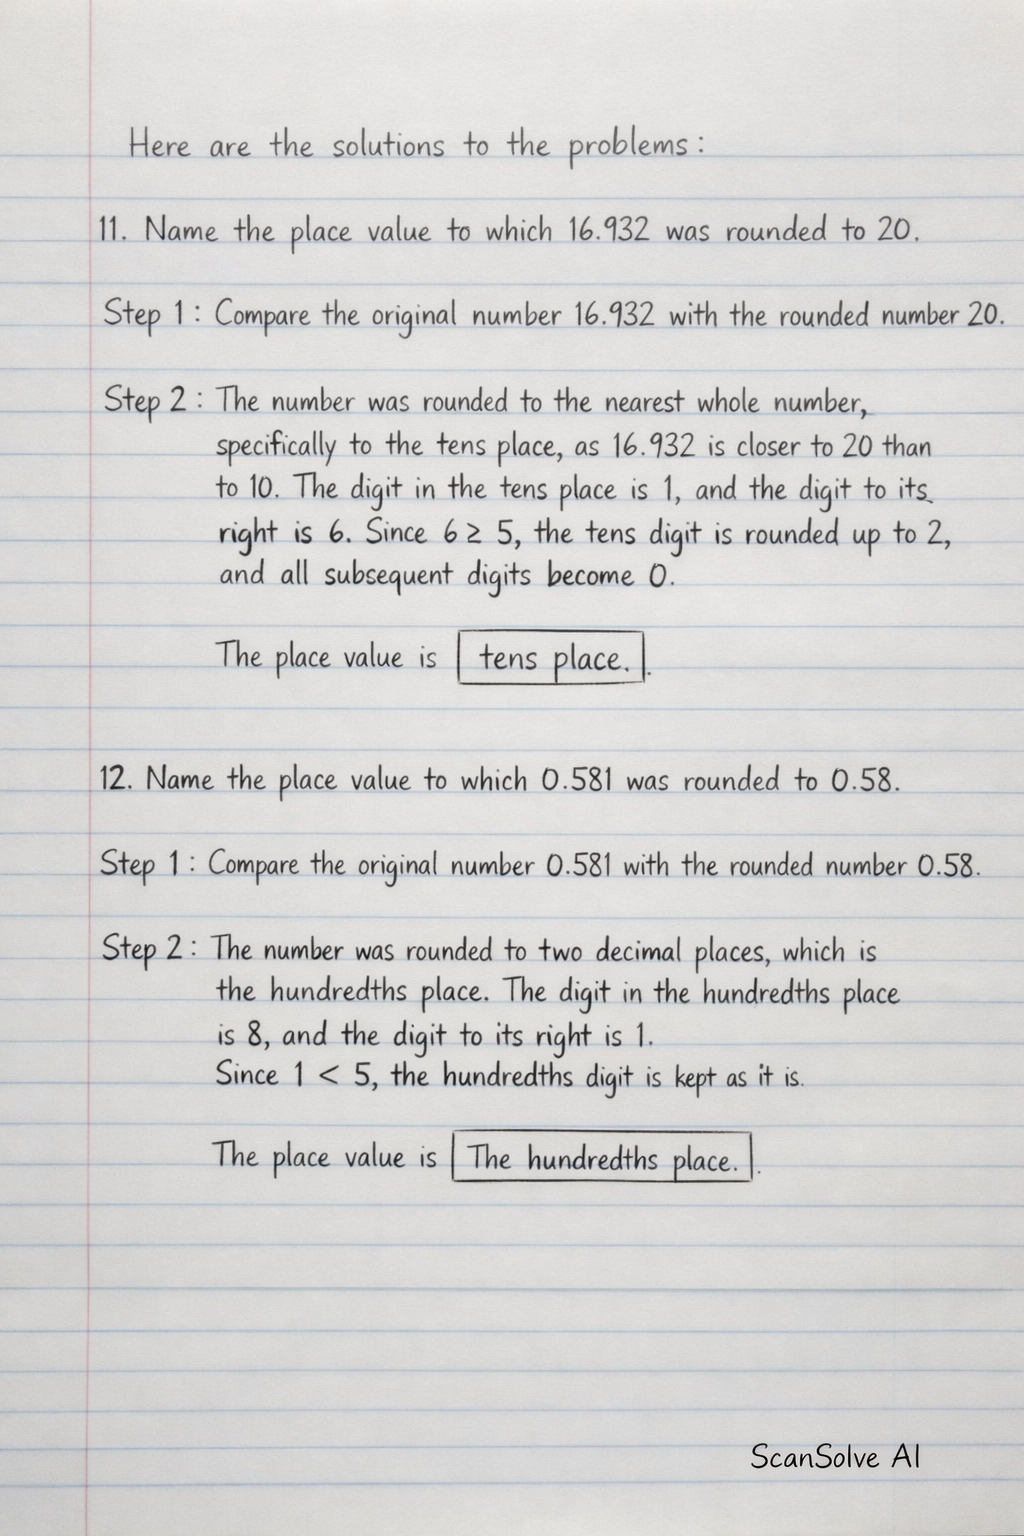 Here are the solutions to the problems:
11. Name the place value to which 16.932 was rounded to 20.
Step 1: Compare the original number 16.932 with the rounded number 20.
Step 2: The number was rounded to the nearest whole number,
specifically to the tens place, as 16.932 is closer to 20 than
to 10. The digit in the tens place is 1, and the digit to its
right is 6. Since 6 ≥ 5, the tens digit is rounded up to 2,
and all subsequent digits become 0.
The place value is tens place..
12. Name the place value to which 0.581 was rounded to 0.58.
Step 1: Compare the original number 0.581 with the rounded number 0.58.
Step 2: The number was rounded to two decimal places, which is
the hundredths place. The digit in the hundredths place
is 8, and the digit to its right is 1.
Since 1 < 5, the hundredths digit is kept as it is.
The place value is The hundredths place..
ScanSolve AI